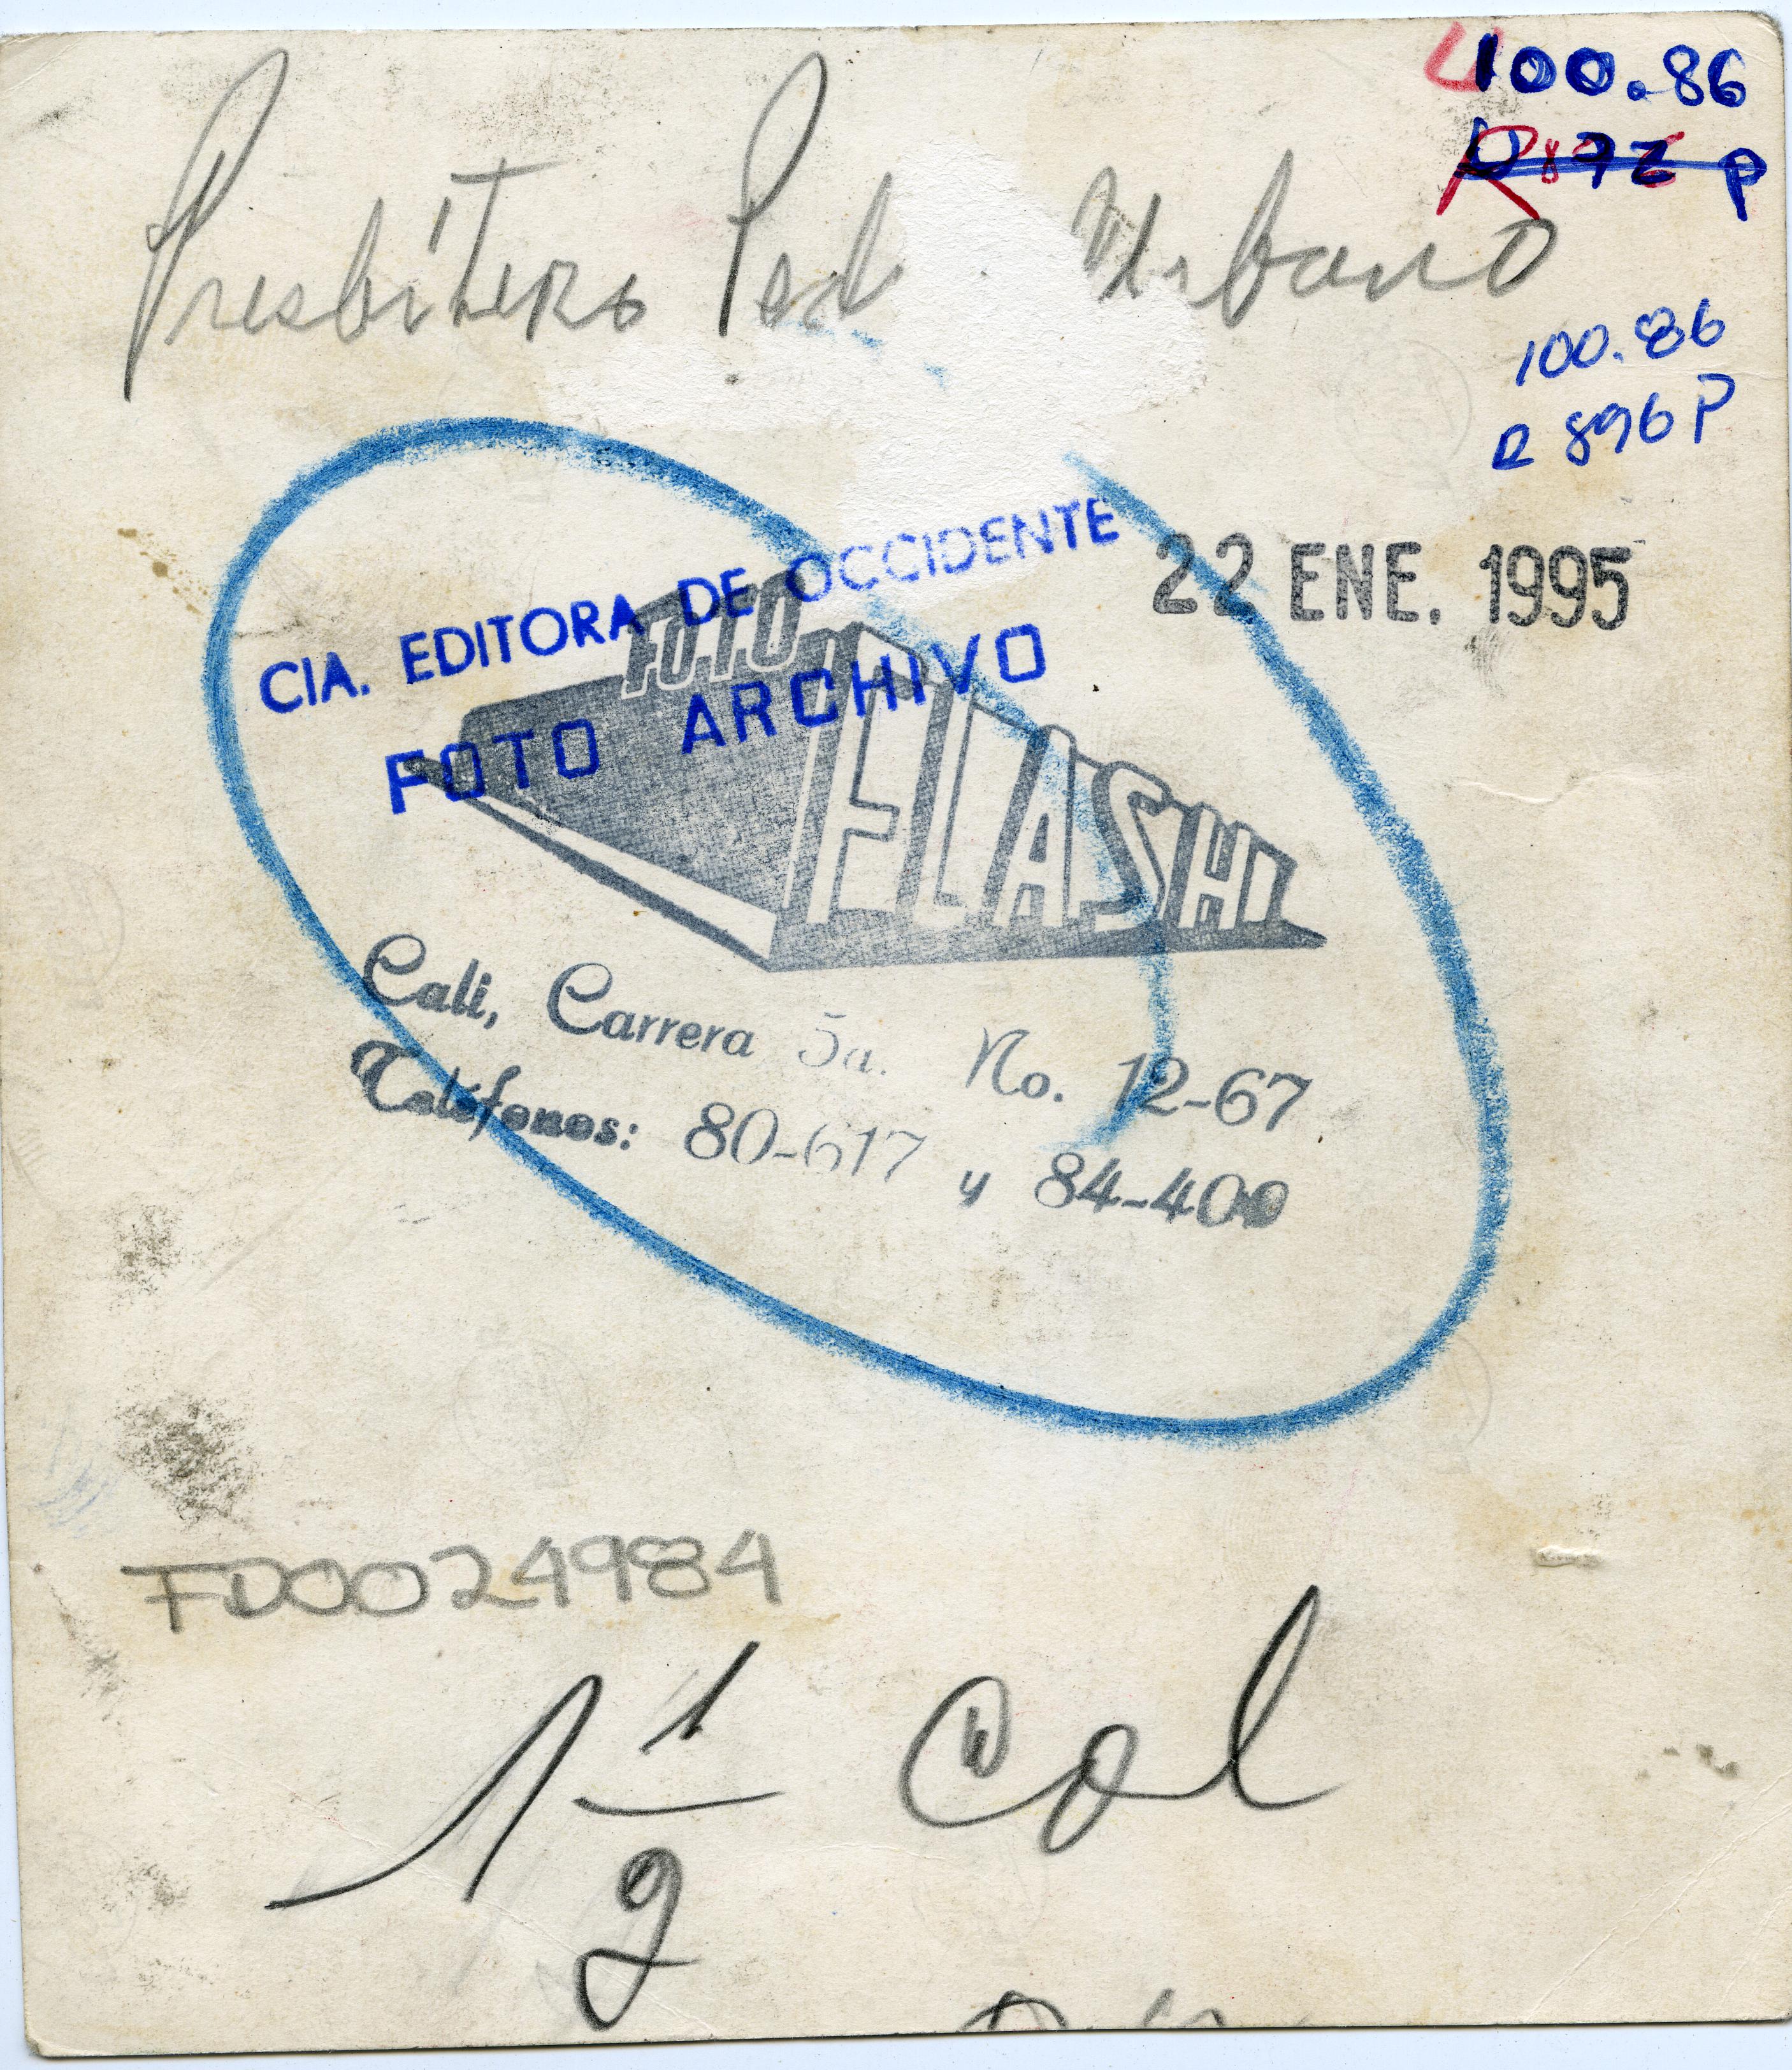 100.86
Presbítero Ped Urbano
100.86
R 896 P
22 ENE. 1995
CIA. EDITORA DE OCCIDENTE
FOTO ARCHIVO
FOTO
FLASH
Cali, Carrera 5a. No. 12-67
Teléfonos: 80-617 y 84-400
FD0024984
1 1/2 Col